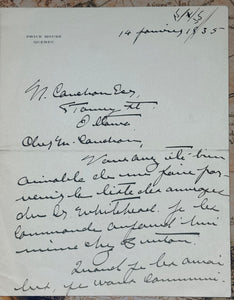 PRICE HOUSE
QUEBEC
14 janvier 1935
M. Cauchon Esq,
Ottawa
Cher M. Cauchon,
Vous avez été bien
aimable de me faire par-
venir la liste des
de Whitehead. Je les
commande aujourd'hui
même chez
Quand je les aurai
lus, je vous